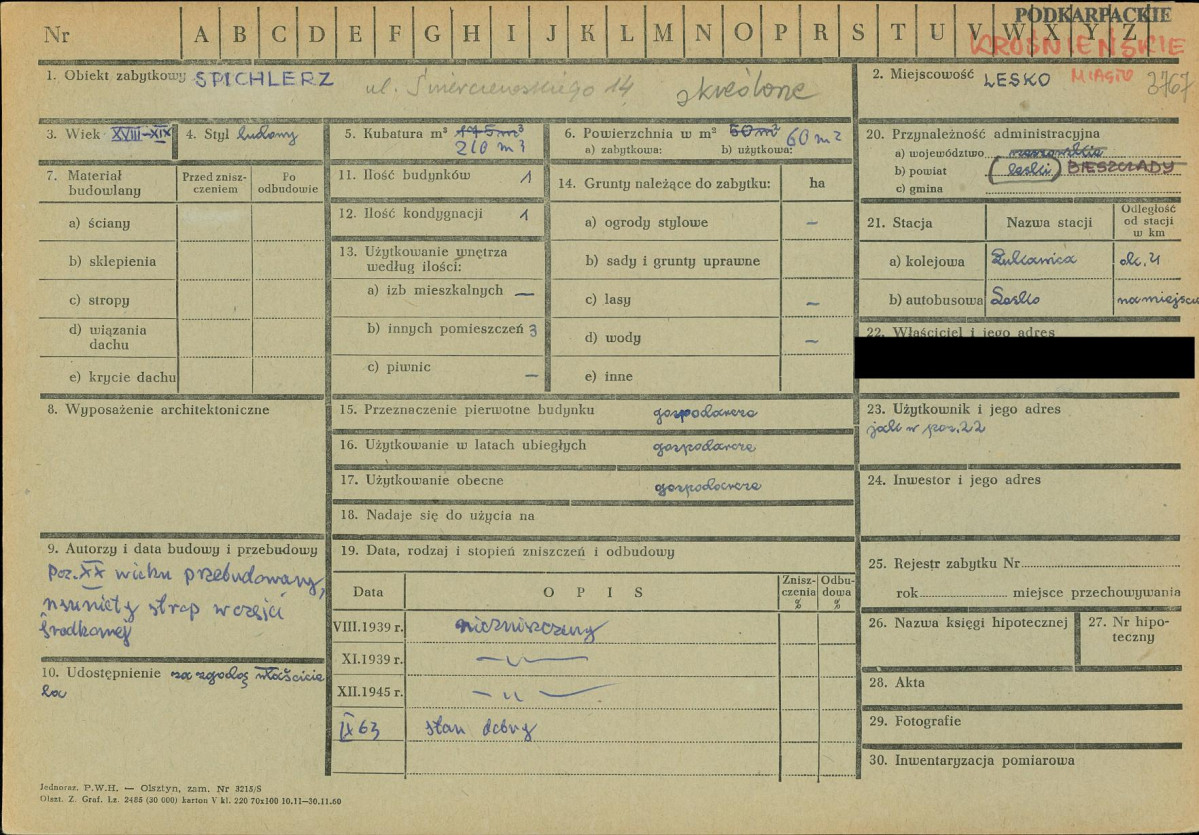 PODKARPACKIE
Nr A B C D E F G H I J K L M N O P R S T U V W X Y Z
KROŚNIEŃSKIE
1. Obiekt zabytkowy SPICHLERZ ul. Świerczewskiego 14 skreślone
2. Miejscowość LESKO MIASTO 3767
3. Wiek XVIII-XIX
4. Styl ludowy
5. Kubatura m³ 175 m³
210 m³
6. Powierzchnia w m² 50 m² 60 m²
a) zabytkowa: b) użytkowa:
7. Materiał budowlany
Przed zniszczeniem
Po odbudowie
a) ściany
b) sklepienia
c) stropy
d) wiązania dachu
e) krycie dachu
8. Wyposażenie architektoniczne
9. Autorzy i data budowy i przebudowy
Poz. XX wieku przebudowany,
usunięty strop w części
środkowej
10. Udostępnienie za zgodą właścicie
la
11. Ilość budynków 1
12. Ilość kondygnacji 1
13. Użytkowanie wnętrza
według ilości:
a) izb mieszkalnych —
b) innych pomieszczeń 3
c) piwnic —
14. Grunty należące do zabytku: ha
a) ogrody stylowe —
b) sady i grunty uprawne
c) lasy —
d) wody —
e) inne
15. Przeznaczenie pierwotne budynku gospodarcze
16. Użytkowanie w latach ubiegłych gospodarcze
17. Użytkowanie obecne gospodarcze
18. Nadaje się do użycia na
19. Data, rodzaj i stopień zniszczeń i odbudowy
Data OPIS Zniszczenia % Odbudowa %
VIII.1939 r. niezniszczony
XI.1939 r. —„—
XII.1945 r. —„—
IX 63 stan dobry
20. Przynależność administracyjna
a) województwo rzeszowskie
b) powiat leski BIESZCZADY
c) gmina
21. Stacja Nazwa stacji Odległość od stacji w km
a) kolejowa Łukawica ok. 4
b) autobusowa Lesko na miejscu
22. Właściciel i jego adres
23. Użytkownik i jego adres
jak w poz. 22
24. Inwestor i jego adres
25. Rejestr zabytku Nr
rok miejsce przechowywania
26. Nazwa księgi hipotecznej
27. Nr hipoteczny
28. Akta
29. Fotografie
30. Inwentaryzacja pomiarowa
Jednoraz. P.W.H. — Olsztyn, zam. Nr 3215/S
Olszt. Z. Graf. Lz. 2485 (30 000) karton V kl. 220 70x100 10.11—30.11.60